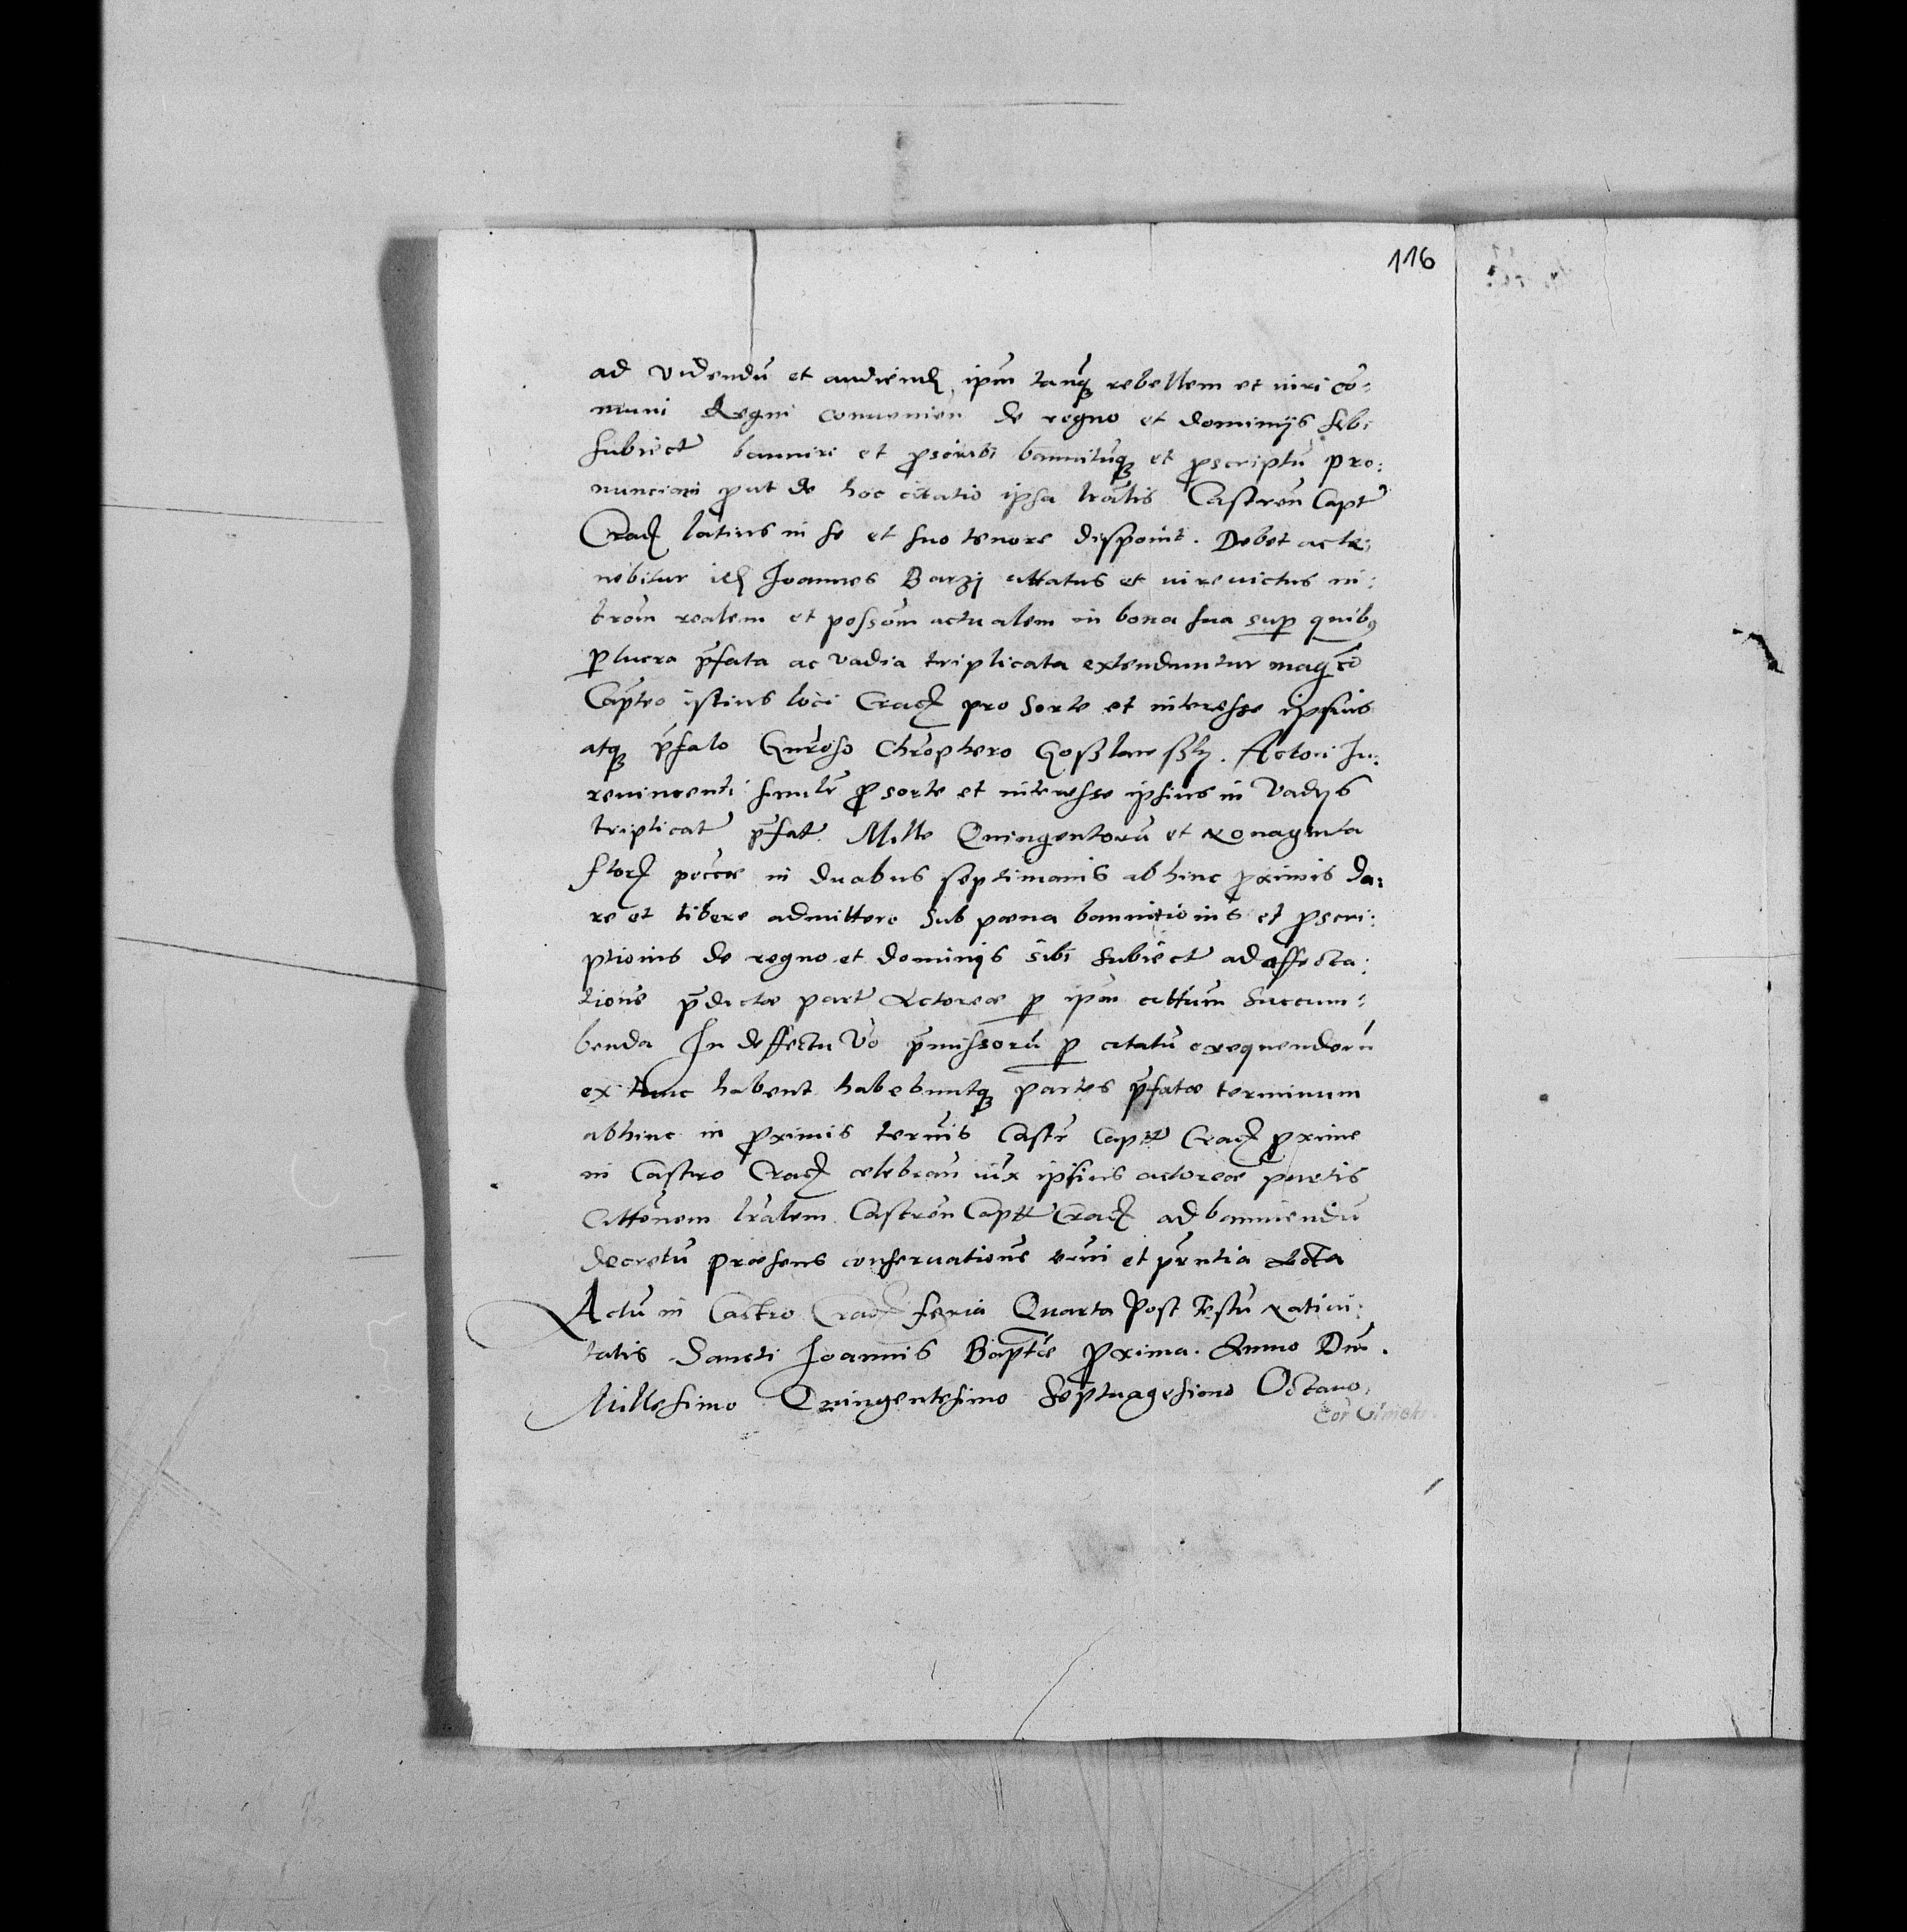 116
ad videndū et audiend̄ ipm̄ tanq̄ rebellem et iuri co̅:
muni Regni conuenien̄ de regno et dominijs sibi
subiect̄ banniri et ꝓscribi bannitūq̨ et ꝓscriptū pro:
nunciari ꝓut de hoc citatio ipsa lr̄alis Castren̄ Capt̄
Crac̄ latius in se et suo tenore disponit. Debet ac te:
nebitur id̄ Joannes Barzj cittatus et iureuictus in:
trom̄ realem et possom̄ actualem in bona sua sup̱ quibꝰ
ꝑ lucra p̄fata ac vadia triplicata extenduntur mag̅co
Cap̄teo istius loci Crac̄ pro sorte et interesse ipsius
atq̨ p̄fato Gn̄roso Chr̄ophero Actori Ju:
reuincenti simil̄r ꝓ sorte et interesse ipsius in Vadijs
triplicat̄ p̄fat̄. Mille Quingentorū et Nonaginta
flor̄ pecc̄æ in duabus septimanis abhinc ꝓximis da:
re et libere admittere sub pœna bannitionis et ꝓscri:
ptionis de regno et dominijs sibi subiect̄ ad affecta:
tione̅ p̄dictæ part̄ Actoreæ ꝑ ipm̄ citt̄um succum:
benda In deffectu Vo̅ p̄missorū ꝑ citatū exequendorū
ex tunc habent habebuntq̨ partes p̄fatæ terminum
abhinc in ꝓximis termis̄ Castr̄ Capt̄ Crac̄ ꝓxime
in Castro Crac̄ celebran̄ iux̄ ipsius actoreæ partis
Citto̅nem lr̄alem Castren̄ Capt̄ Crac̄ ad banniendū
decretū præsens conseruatione̅ termi̅ et pn̄tia Acta
Actū in Castro Crac̄ feria Quarta Post Festū Natiui:
tatis Sancti Joannis Bapt̄æ ꝓxima. Anno Dni̅.
Millesimo Quingentesimo Septuagesimo Octauo,
Cor